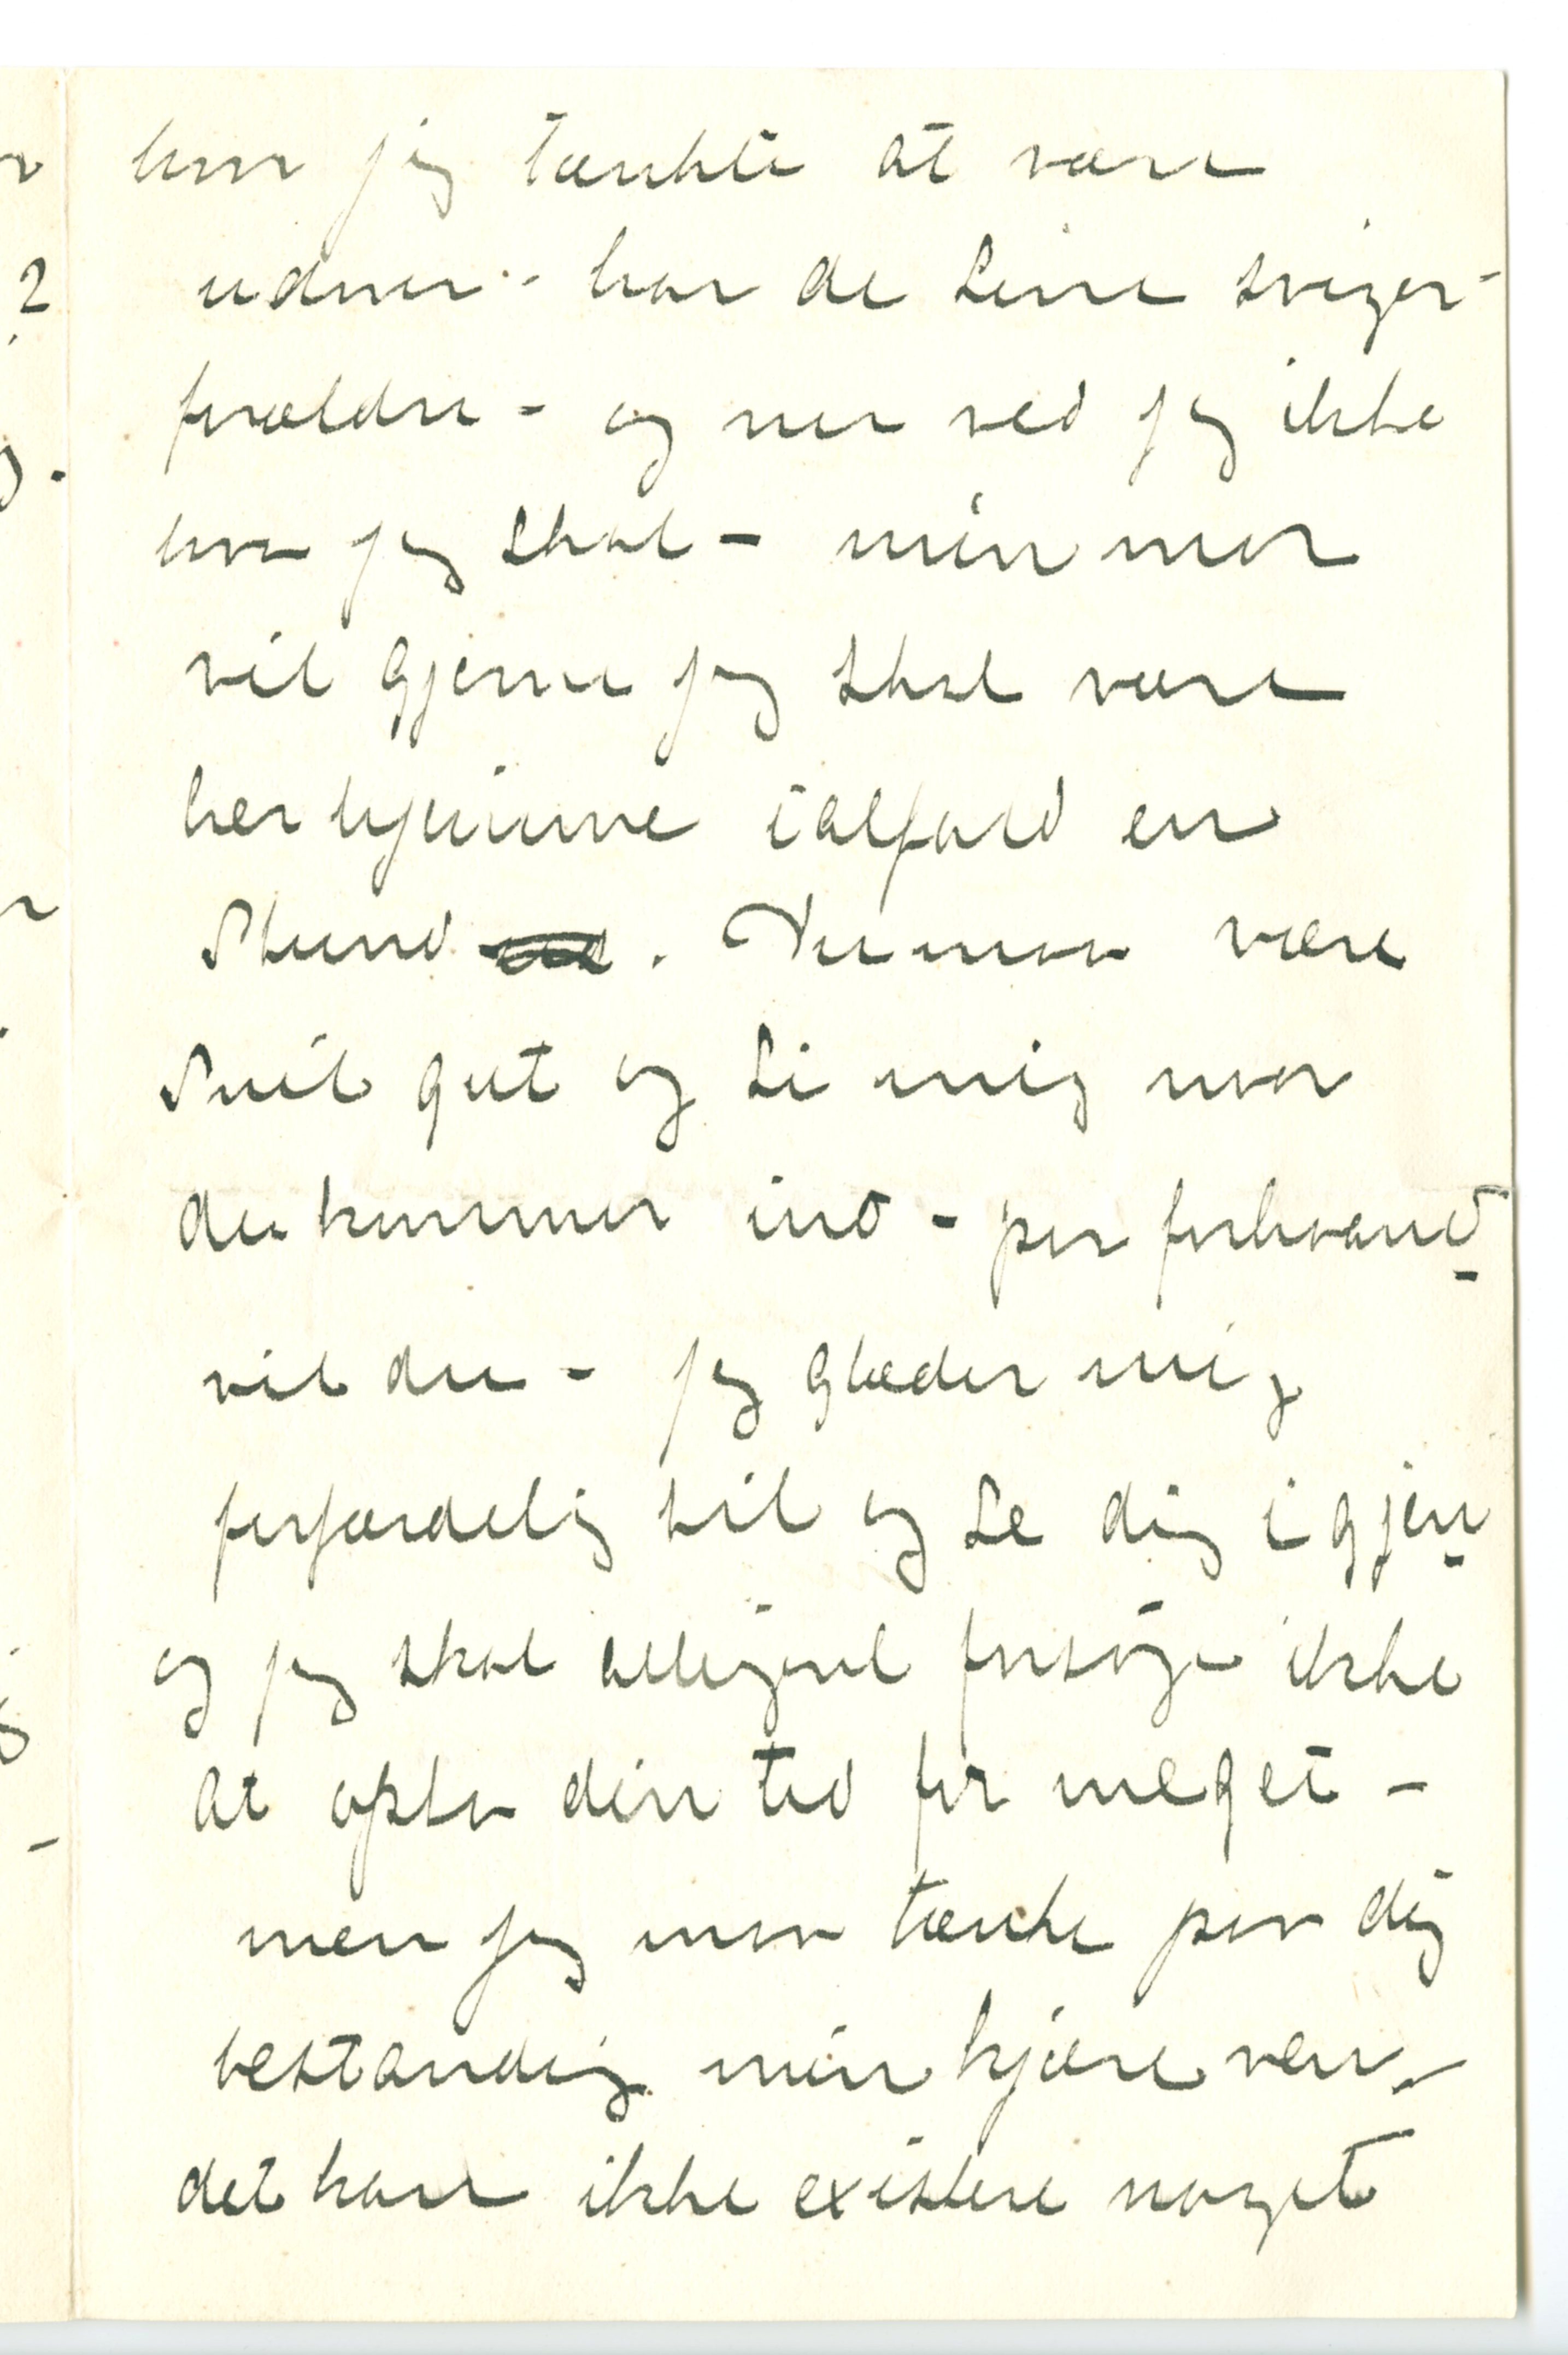 hvor jeg tænkte at være
udover - har de sine sviger-
forældre - og nu ved jeg ikke
hva jeg skal - min mor
vil gjerne jeg skal være
her hjemme ialfald en
Stund. Du maa være
Snil gut og si mig naar
du kommer ind - paa forhaand
vil du - jeg glæder mig
forfærdelig til og se dig igjen
og jeg skal alligevel forsøge ikke
at opta din tid for meget -
men jeg maa tænke paa dig
bestandig min kjære ven -
det kan ikke existere noget